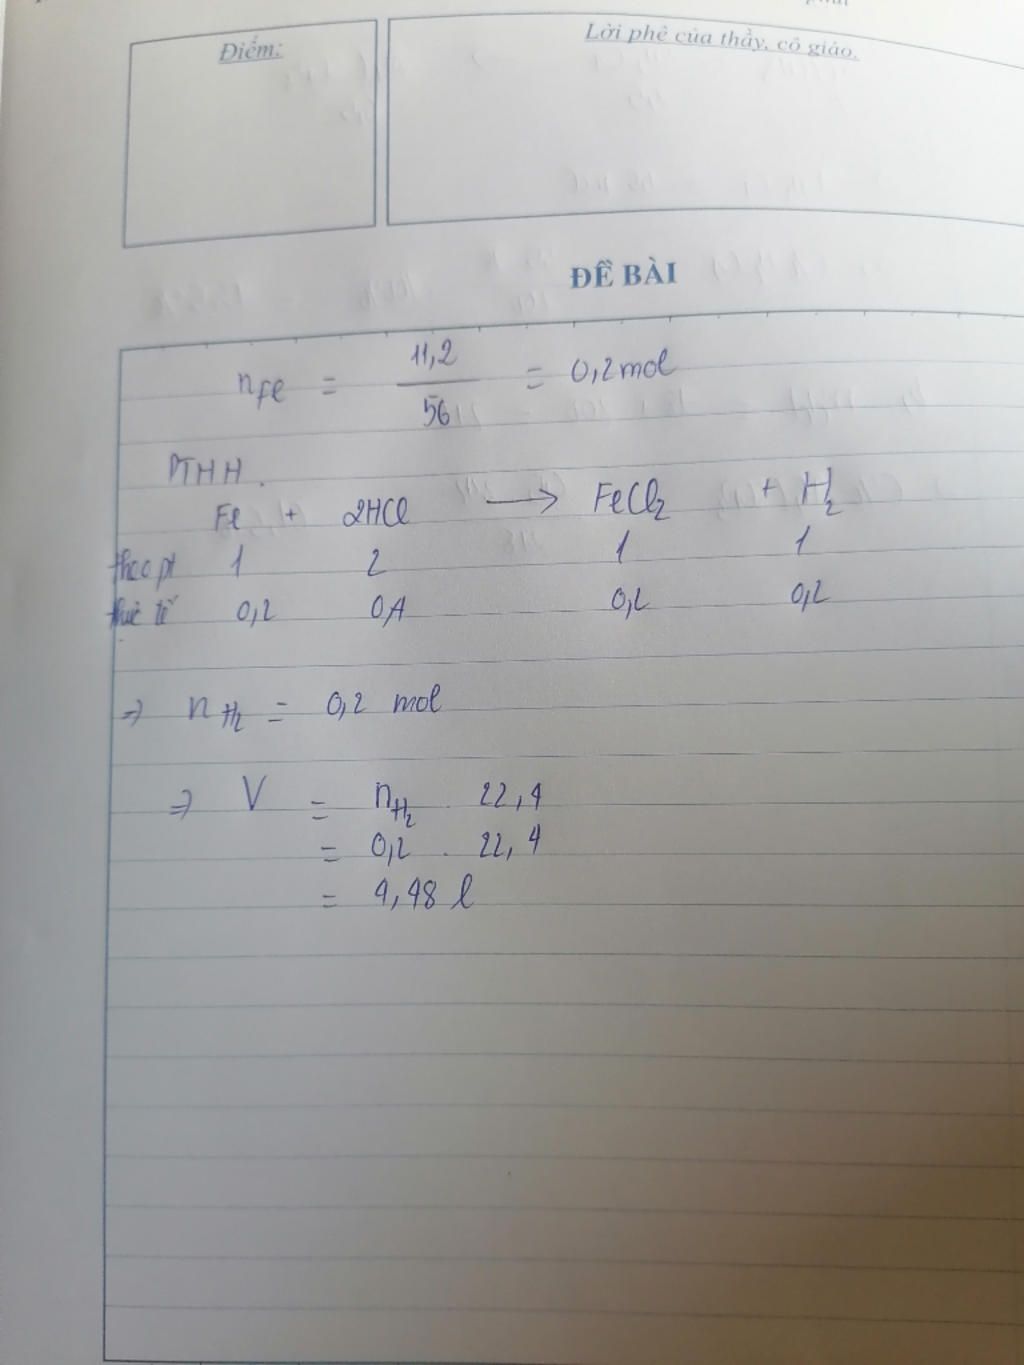 Điểm:
Lời phê của thầy, cô giáo.
ĐỀ BÀI
nFe = 11,2 / 56 = 0,2 mol
PTHH.
Fe + 2HCl → FeCl2 + H2
theo pt 1 2 1 1
thực tế 0,2 0,4 0,2 0,2
⇒ nH2 = 0,2 mol
⇒ V = nH2 . 22,4
= 0,2 . 22,4
= 4,48 l